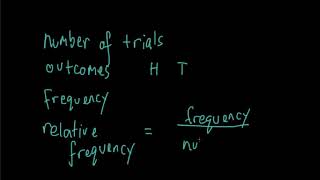 number of trials
outcomes H T
frequency
relative frequency = frequency
nu